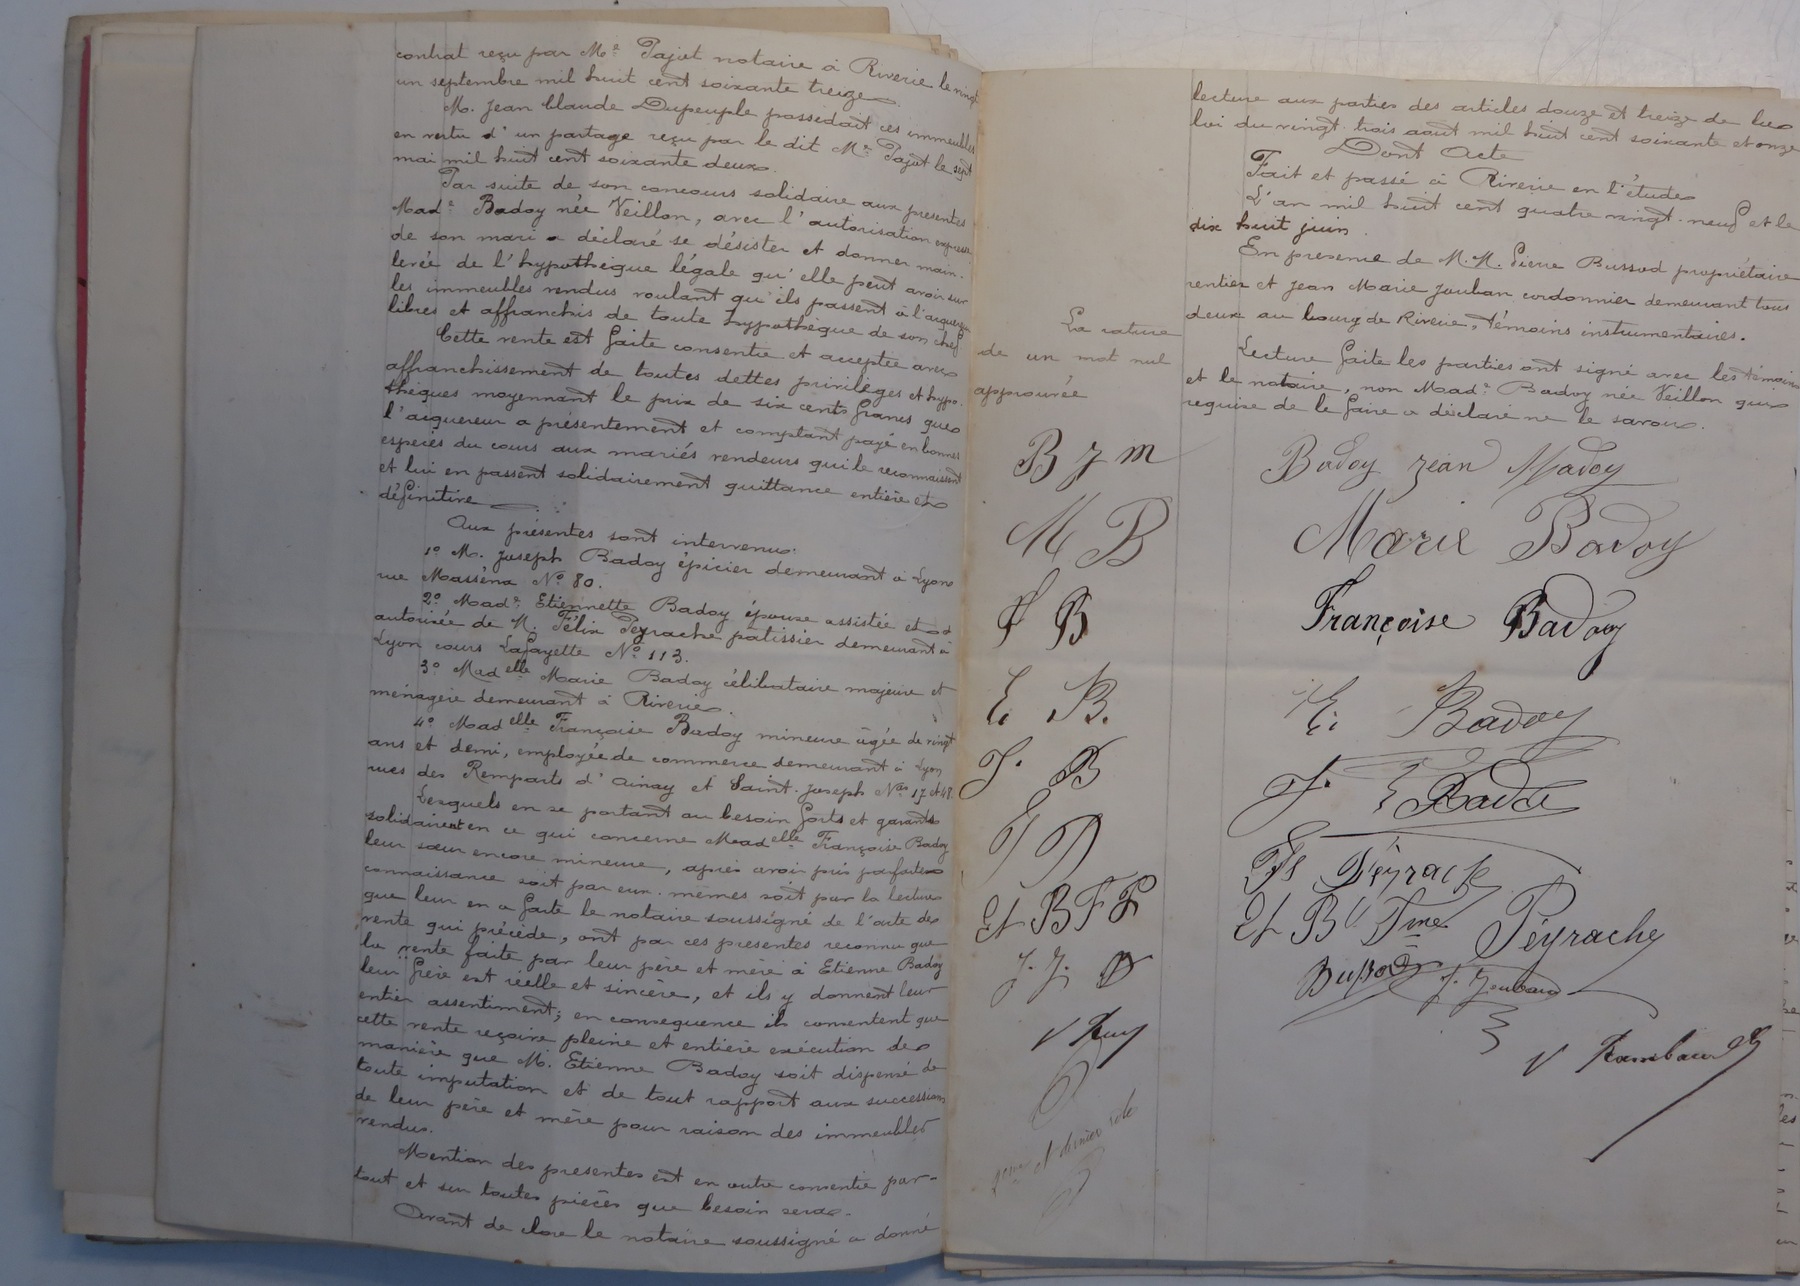 contrat reçu par Me Pajet notaire à Riverie le vingt
un septembre mil huit cent soixante treize.
M. Jean Claude Dupeuple possedait ces immeubles
en vertu d'un partage reçu par le dit Me Pajet le sept
mai mil huit cent soixante deux.
Par suite de son concours solidaire aux presentes
Made Badoy née Veillon, avec l'autorisation expresse
de son mari a déclaré se désister et donner main-
levée de l'hypothèque légale qu'elle peut avoir sur
les immeubles vendus voulant qu'ils passent à l'acquereur
libres et affranchis de toute hypothèque de son chef
Cette vente est faite consentie et acceptée avec
affranchissement de toutes dettes privilèges et hypo-
thèques moyennant le prix de six cents francs que
l'acquereur a présentement et comptant payé en bonnes
espèces du cours aux mariés vendeurs qui le reconnaissent
et lui en passent solidairement quittance entière et
définitive
Aux présentes sont intervenus.
1o M. Joseph Badoy épicier demeurant à Lyon
rue Masséna No 80.
2o Made Etiennette Badoy épouse assistée et
autorisée de M. Félix Peyrache patissier demeurant à
Lyon cours Lafayette No 113.
3o Madelle Marie Badoy célibataire majeure et
ménagère demeurant à Riverie.
4o Madelle Françoise Badoy mineure âgée de vingt
ans et demi, employée de commerce demeurant à Lyon
rues des Remparts d'Ainay et Saint-Joseph Nos 17 et 48.
Lesquels en se portant au besoin forts et garants
solidairement en ce qui concerne Madelle Françoise Badoy
leur sœur encore mineure, après avoir pris parfaite
connaissance soit par eux-mêmes soit par la lecture
que leur en a faite le notaire soussigné de l'acte de
vente qui précède, ont par ces presentes reconnu que
la vente faite par leur père et mère à Etienne Badoy
leur frère est réelle et sincère, et ils y donnent leur
entier assentiment; en consequence ils consentent que
cette vente reçoive pleine et entière exécution de
manière que M. Etienne Badoy soit dispensé de
toute imputation et de tout rapport aux successions
de leur père et mère pour raison des immeubles
vendus.
Mention des presentes est en outre consentie par-
tout et sur toutes pièces que besoin sera.
Avant de clore le notaire soussigné a donné
lecture aux parties des articles douze et treize de la
loi du vingt-trois août mil huit cent soixante et onze
Dont Acte
Fait et passé à Riverie en l'étude
L'an mil huit cent quatre vingt-neuf et le
dix huit juin.
En presence de M.M. Pierre Bussod propriétaire
rentier et Jean Marie Jouban cordonnier demeurant tous
deux au bourg de Riverie, témoins instrumentaires.
Lecture faite les parties ont signé avec les témoins
et le notaire, non Made Badoy née Veillon qui
requise de le faire a déclaré ne le savoir.
La rature
de un mot nul
approuvée
B J M
M B
F B
E B.
J. B
Et B F P
J. J.
V Ram
et dernier rôle
Badoy jean Madoy
Marie Badoy
Françoise Badoy
E. Badoy
J. Badoi
Peyrache
Et By Fme Peyrache
Bussod J. Jouband
V Rambaud